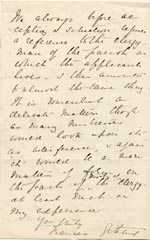 We always before ac
cepting a scholar require
a reference to the clergy-
man of the parish in
which the applicant
lives. & this amounts
to almost the same thing
It is somewhat a
delicate matter though
as many
would look upon it
as interference, & again
it would be a mere
matter of form on
the part of the clergy.
at least such is
my experience
Yours truly
Frances